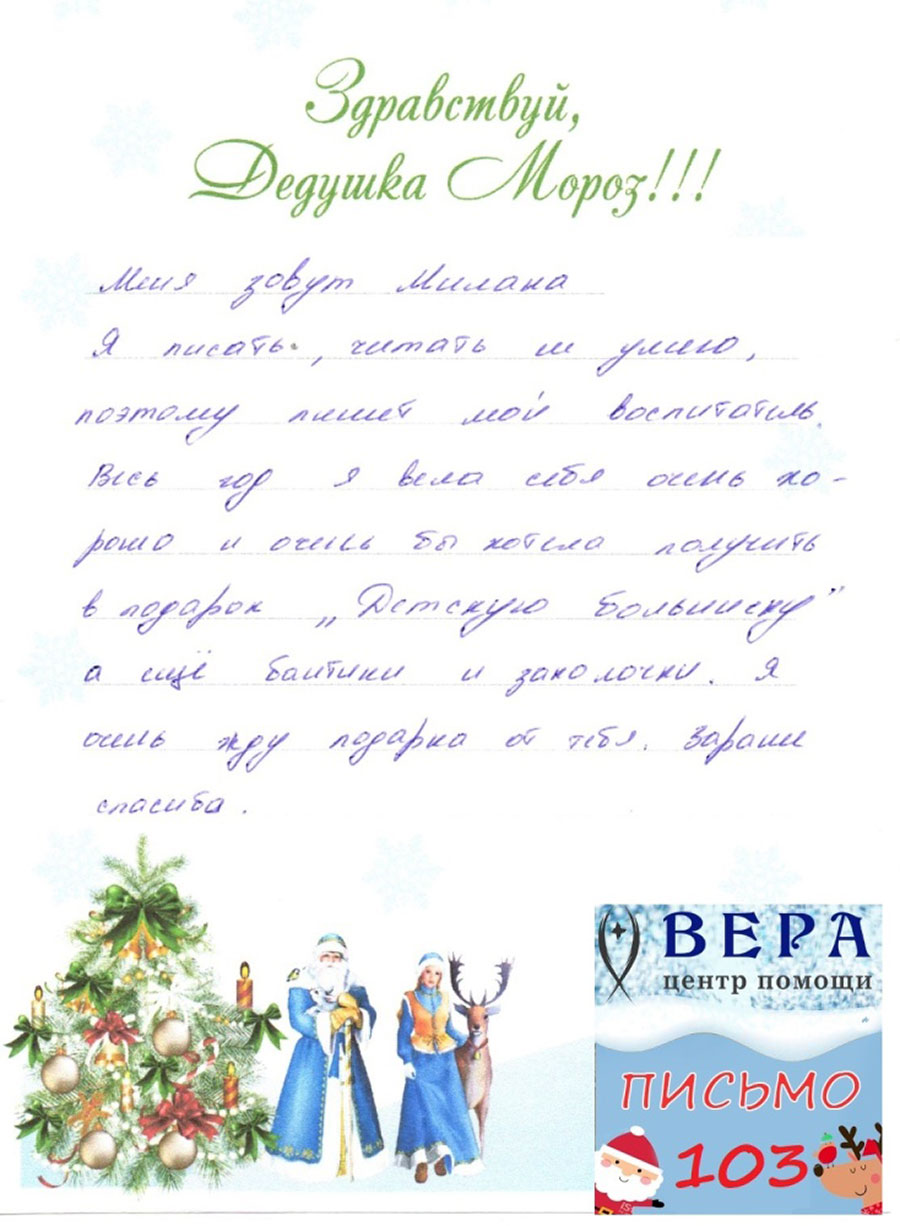 Здравствуй,
Дедушка Мороз!!!
Меня зовут Милана
Я писать, читать не умею,
поэтому пишет мой воспитатель.
Весь год я вела себя очень хо-
рошо и очень бы хотела получить
в подарок „Детскую больницу"
а ещё бантики и заколочки. Я
очень жду подарка от тебя. Заранее
спасиба.
ВЕРА
центр помощи
ПИСЬМО
103